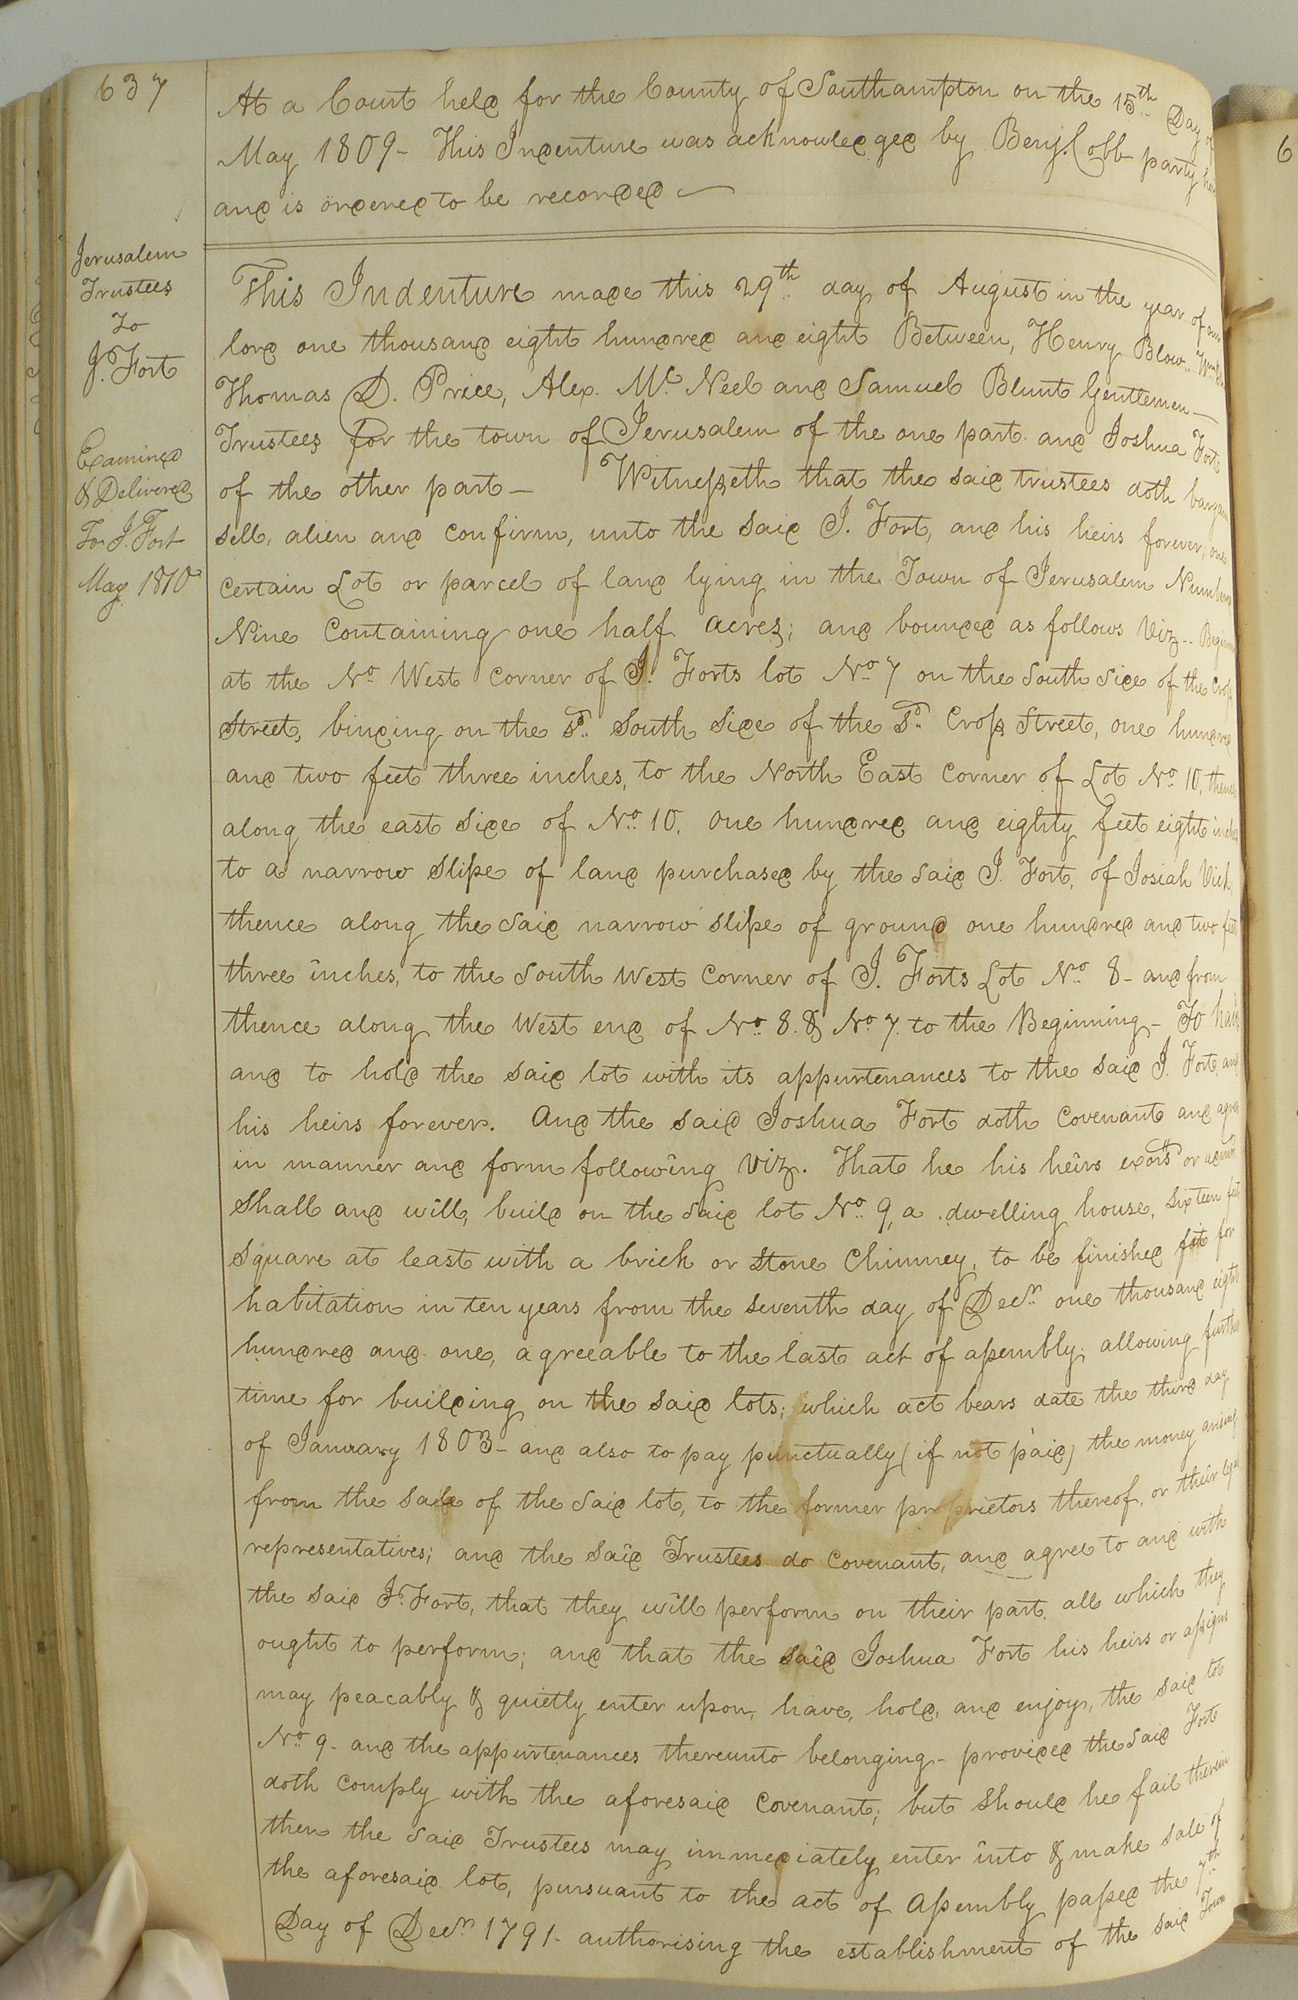 637
At a Court held for the County of Southampton on the 15th Day of
May 1809 - This Indenture was acknowledged by Benj. Cobb party
and is ordered to be recorded
Jerusalem
Trustees
To
J. Fort
Examined
& Delivered
To J. Fort
May 1810
This Indenture made this 29th day of August in the year of our
lord one thousand eight hundred and eight Between, Henry Blow
Thomas D. Price, Alex. Mc Neel and Samuel Blunt Gentlemen -
Trustees for the town of Jerusalem of the one part and Joshua Fort
of the other part - Witnesseth that the said trustees doth
sell, alien and confirm, unto the said J. Fort, and his heirs forever, one
certain Lot or parcel of land lying in the Town of Jerusalem
Nine Containing one half acres; and bounded as follows Viz -
at the No West corner of J. Forts lot No 7 on the South side of the Cross
Street, binding on the sd. South side of the sd. Cross Street, one hundred
and two feet three inches, to the North East corner of Lot No. 10, thence
along the east side of No. 10, one hundred and eighty feet eight inches
to a narrow slipe of land purchased by the said J. Fort, of Josiah Vick
thence along the said narrow slipe of ground one hundred and two feet
three inches, to the South West corner of J. Forts Lot No 8 - and from
thence along the West end of No 8. & No 7. to the Beginning - To have
and to hold the said lot with its appurtenances to the said J. Fort, and
his heirs forever. And the said Joshua Fort doth covenant and agree
in manner and form following Viz. That he his heirs exors or
shall and will, build on the said lot No. 9, a dwelling house, Sixteen feet
square at least with a brick or stone Chimney, to be finished fit for
habitation in ten years from the seventh day of Decr. one thousand eight
hundred and one, agreeable to the last act of assembly; allowing further
time for building on the said lots; which act bears date the third day
of January 1803 - and also to pay punctually (if not paid) the money arising
from the sale of the said lot, to the former proprietors thereof, or their legal
representatives; and the said Trustees do covenant, and agree to and with
the said J. Fort, that they will perform on their part, all which they
ought to perform; and that the said Joshua Fort his heirs or assigns
may peacably & quietly enter upon, have, hold, and enjoy, the said lot
No 9 - and the appurtenances thereunto belonging - provided the said Fort
doth comply with the aforesaid covenant; but should he fail therein
then the said Trustees may immediately enter into & make sale of
the aforesaid lot, pursuant to the act of assembly passed the 7th
Day of Decr. 1791 - authorising the establishment of the said Town
6